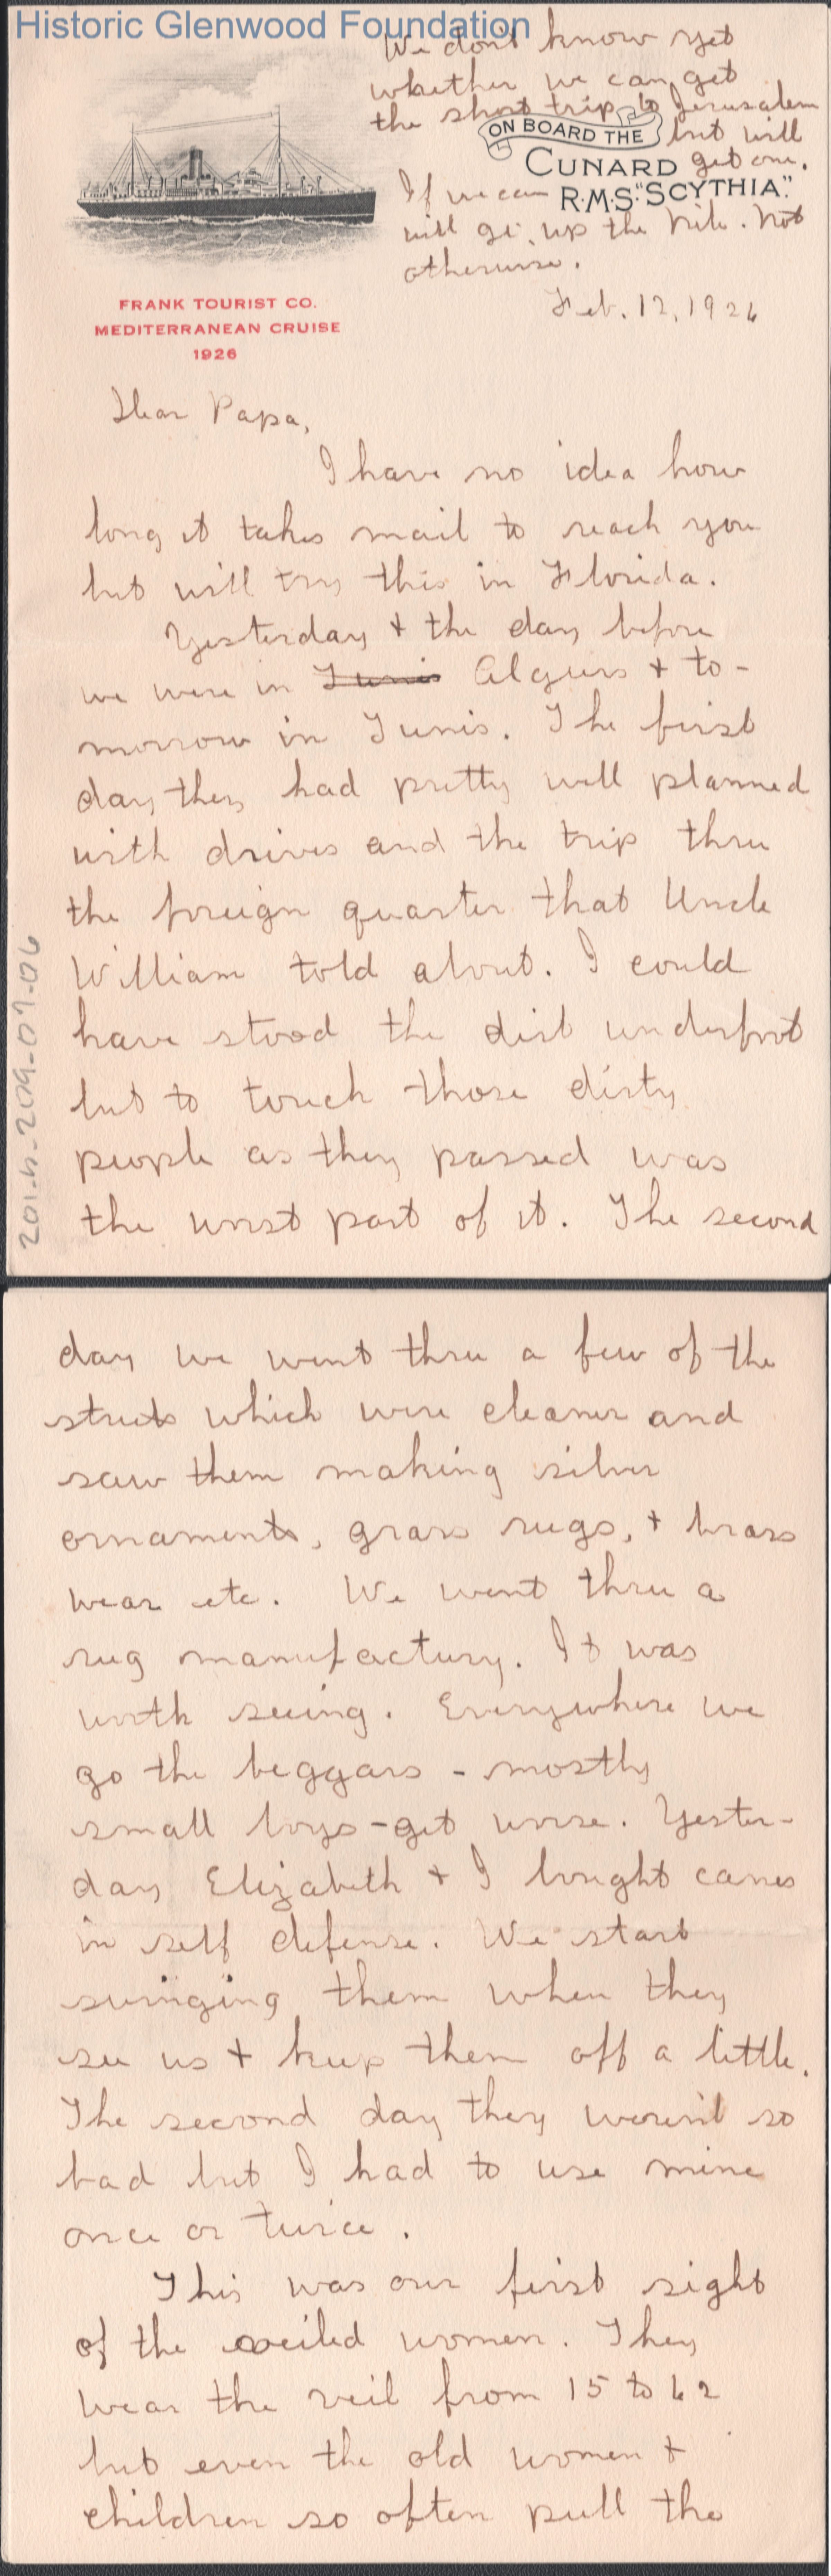 Historic Glenwood Foundation
We dont know yet
whether we can get
the short trip to Jerusalem
but will
get one.
If we can
will go up the Nile. Not
otherwise.
ON BOARD THE
CUNARD
R.M.S. "SCYTHIA."
FRANK TOURIST CO.
MEDITERRANEAN CRUISE
1926
Feb. 12, 1926
Dear Papa,
I have no idea how
long it takes mail to reach you
but will try this in Florida.
Yesterday + the day before
we were in Tunis Algiers + to-
morrow in Tunis. The first
day they had pretty well planned
with drives and the trip thru
the foreign quarter that Uncle
William told about. I could
have stood the dirt underfoot
but to touch those dirty
people as they passed was
the worst part of it. The second
201.4-209-07-06
day we went thru a few of the
streets which were cleaner and
saw them making silver
ornaments, grass rugs, + brass
wear etc. We went thru a
rug manufactury. It was
worth seeing. Everywhere we
go the beggars - mostly
small boys - get worse. Yester-
day Elizabeth + I bought canes
in self defense. We start
swinging them when they
see us + keep them off a little.
The second day they weren't so
bad but I had to use mine
once or twice.
This was our first sight
of the veiled women. They
wear the veil from 15 to 62
but even the old women +
children so often pull the